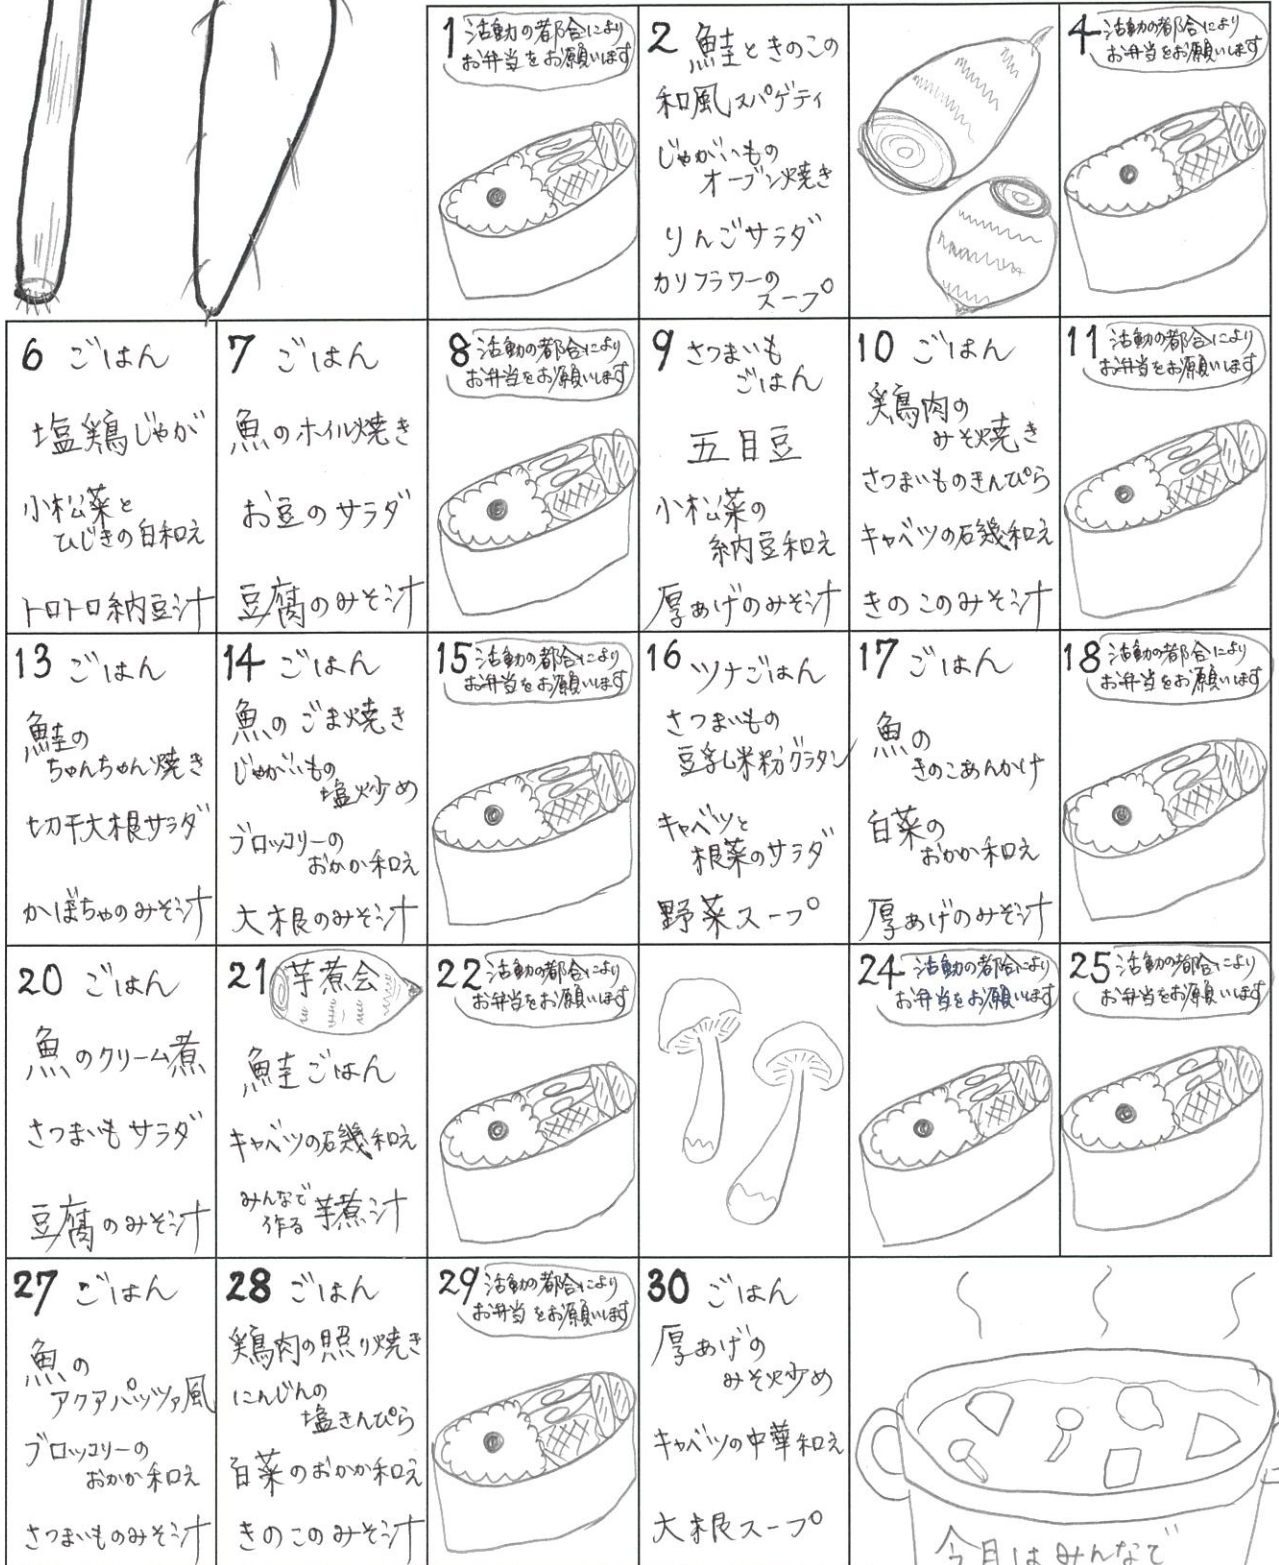 1 活動の都合により
お弁当をお願いします
2 鮭ときのこの
和風スパゲティ
じゃがいもの
オーブン焼き
りんごサラダ
カリフラワーの
スープ
4 活動の都合により
お弁当をお願いします
6 ごはん
塩鶏じゃが
小松菜と
ひじきの白和え
トロトロ納豆汁
7 ごはん
魚のホイル焼き
お豆のサラダ
豆腐のみそ汁
8 活動の都合により
お弁当をお願いします
9 さつまいも
ごはん
五目豆
小松菜の
納豆和え
厚あげのみそ汁
10 ごはん
鶏肉の
みそ焼き
さつまいものきんぴら
キャベツの磯和え
きのこのみそ汁
11 活動の都合により
お弁当をお願いします
13 ごはん
鮭の
ちゃんちゃん焼き
切干大根サラダ
かぼちゃのみそ汁
14 ごはん
魚のごま焼き
じゃがいもの
塩炒め
ブロッコリーの
おかか和え
大根のみそ汁
15 活動の都合により
お弁当をお願いします
16 ツナごはん
さつまいもの
豆乳米粉グラタン
キャベツと
根菜のサラダ
野菜スープ
17 ごはん
魚の
きのこあんかけ
白菜の
おかか和え
厚あげのみそ汁
18 活動の都合により
お弁当をお願いします
20 ごはん
魚のクリーム煮
さつまいもサラダ
豆腐のみそ汁
21 芋煮会
鮭ごはん
キャベツの磯和え
みんなで
作る 芋煮汁
22 活動の都合により
お弁当をお願いします
24 活動の都合により
お弁当をお願いします
25 活動の都合により
お弁当をお願いします
27 ごはん
魚の
アクアパッツァ風
ブロッコリーの
おかか和え
さつまいものみそ汁
28 ごはん
鶏肉の照り焼き
にんじんの
塩きんぴら
白菜のおかか和え
きのこのみそ汁
29 活動の都合により
お弁当をお願いします
30 ごはん
厚あげの
みそ炒め
キャベツの中華和え
大根スープ
今月はみんなで